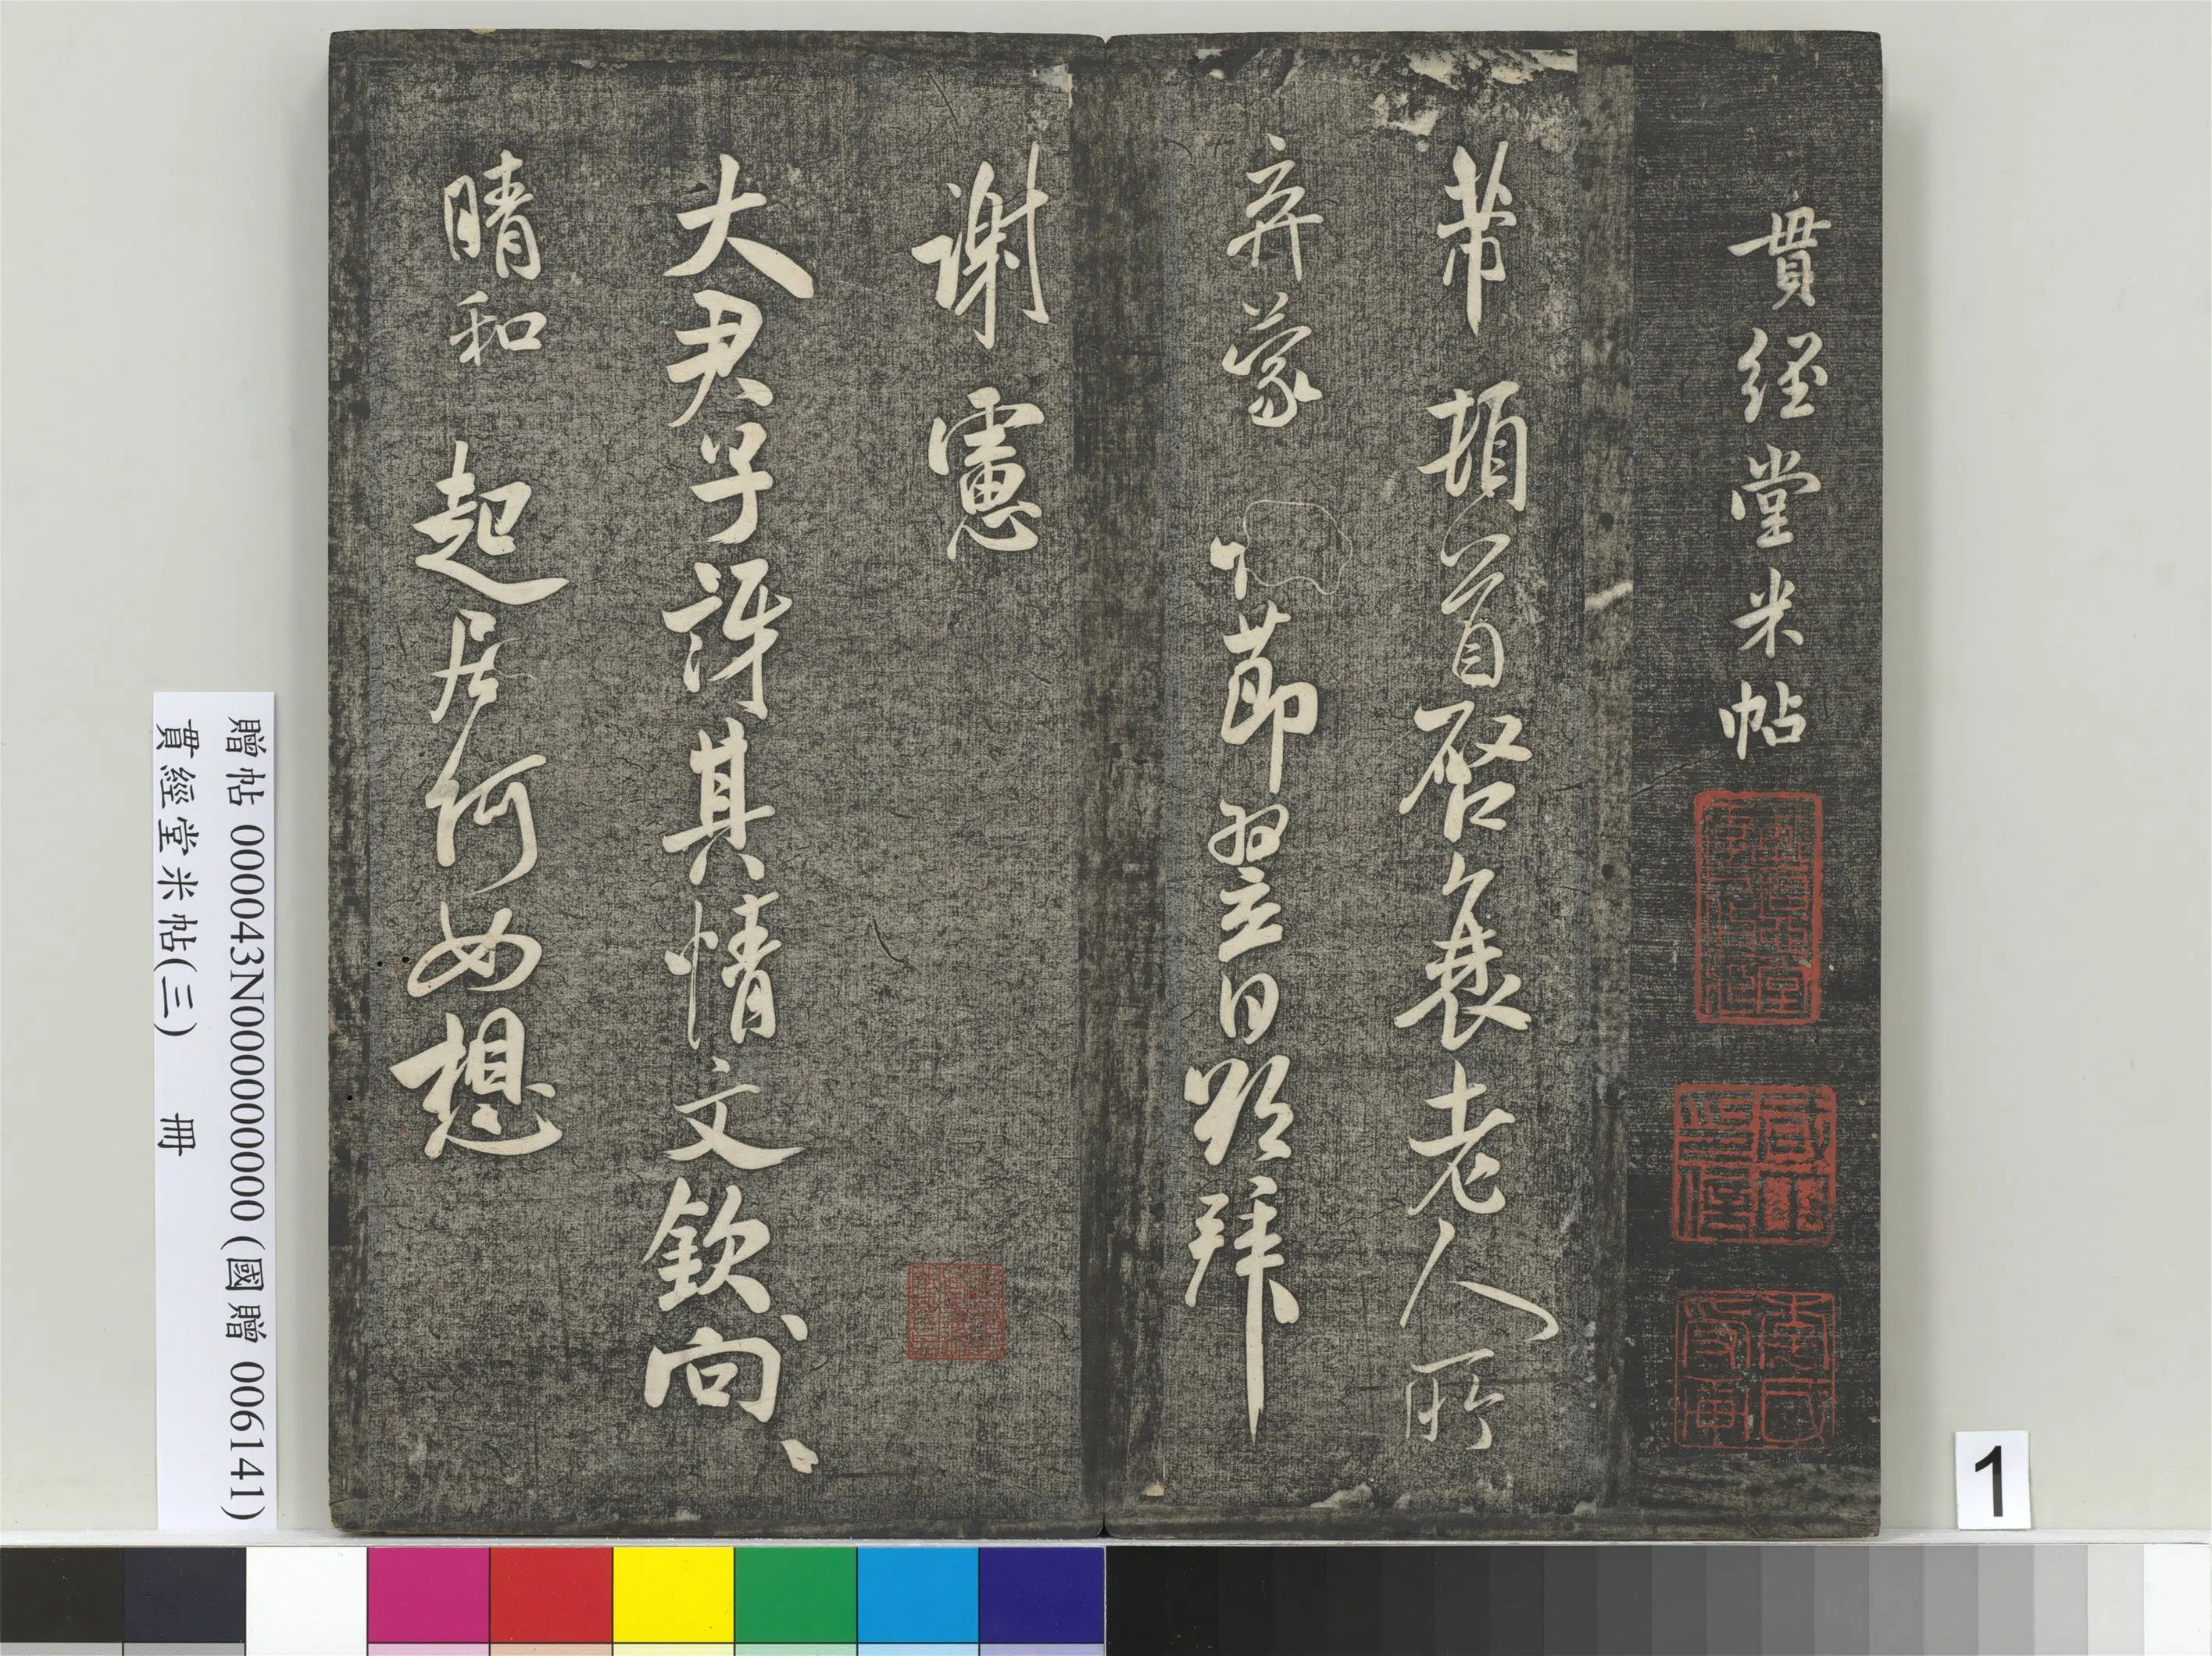 貫経堂米帖
芾頓首啓衰老人所
弃蒙
節翌日躬拜
謝憲
大君子訝其情文欽向、
晴和起居何如想
贈帖 000043N000000000 (國贈 006141)
貫經堂米帖(三) 冊
1